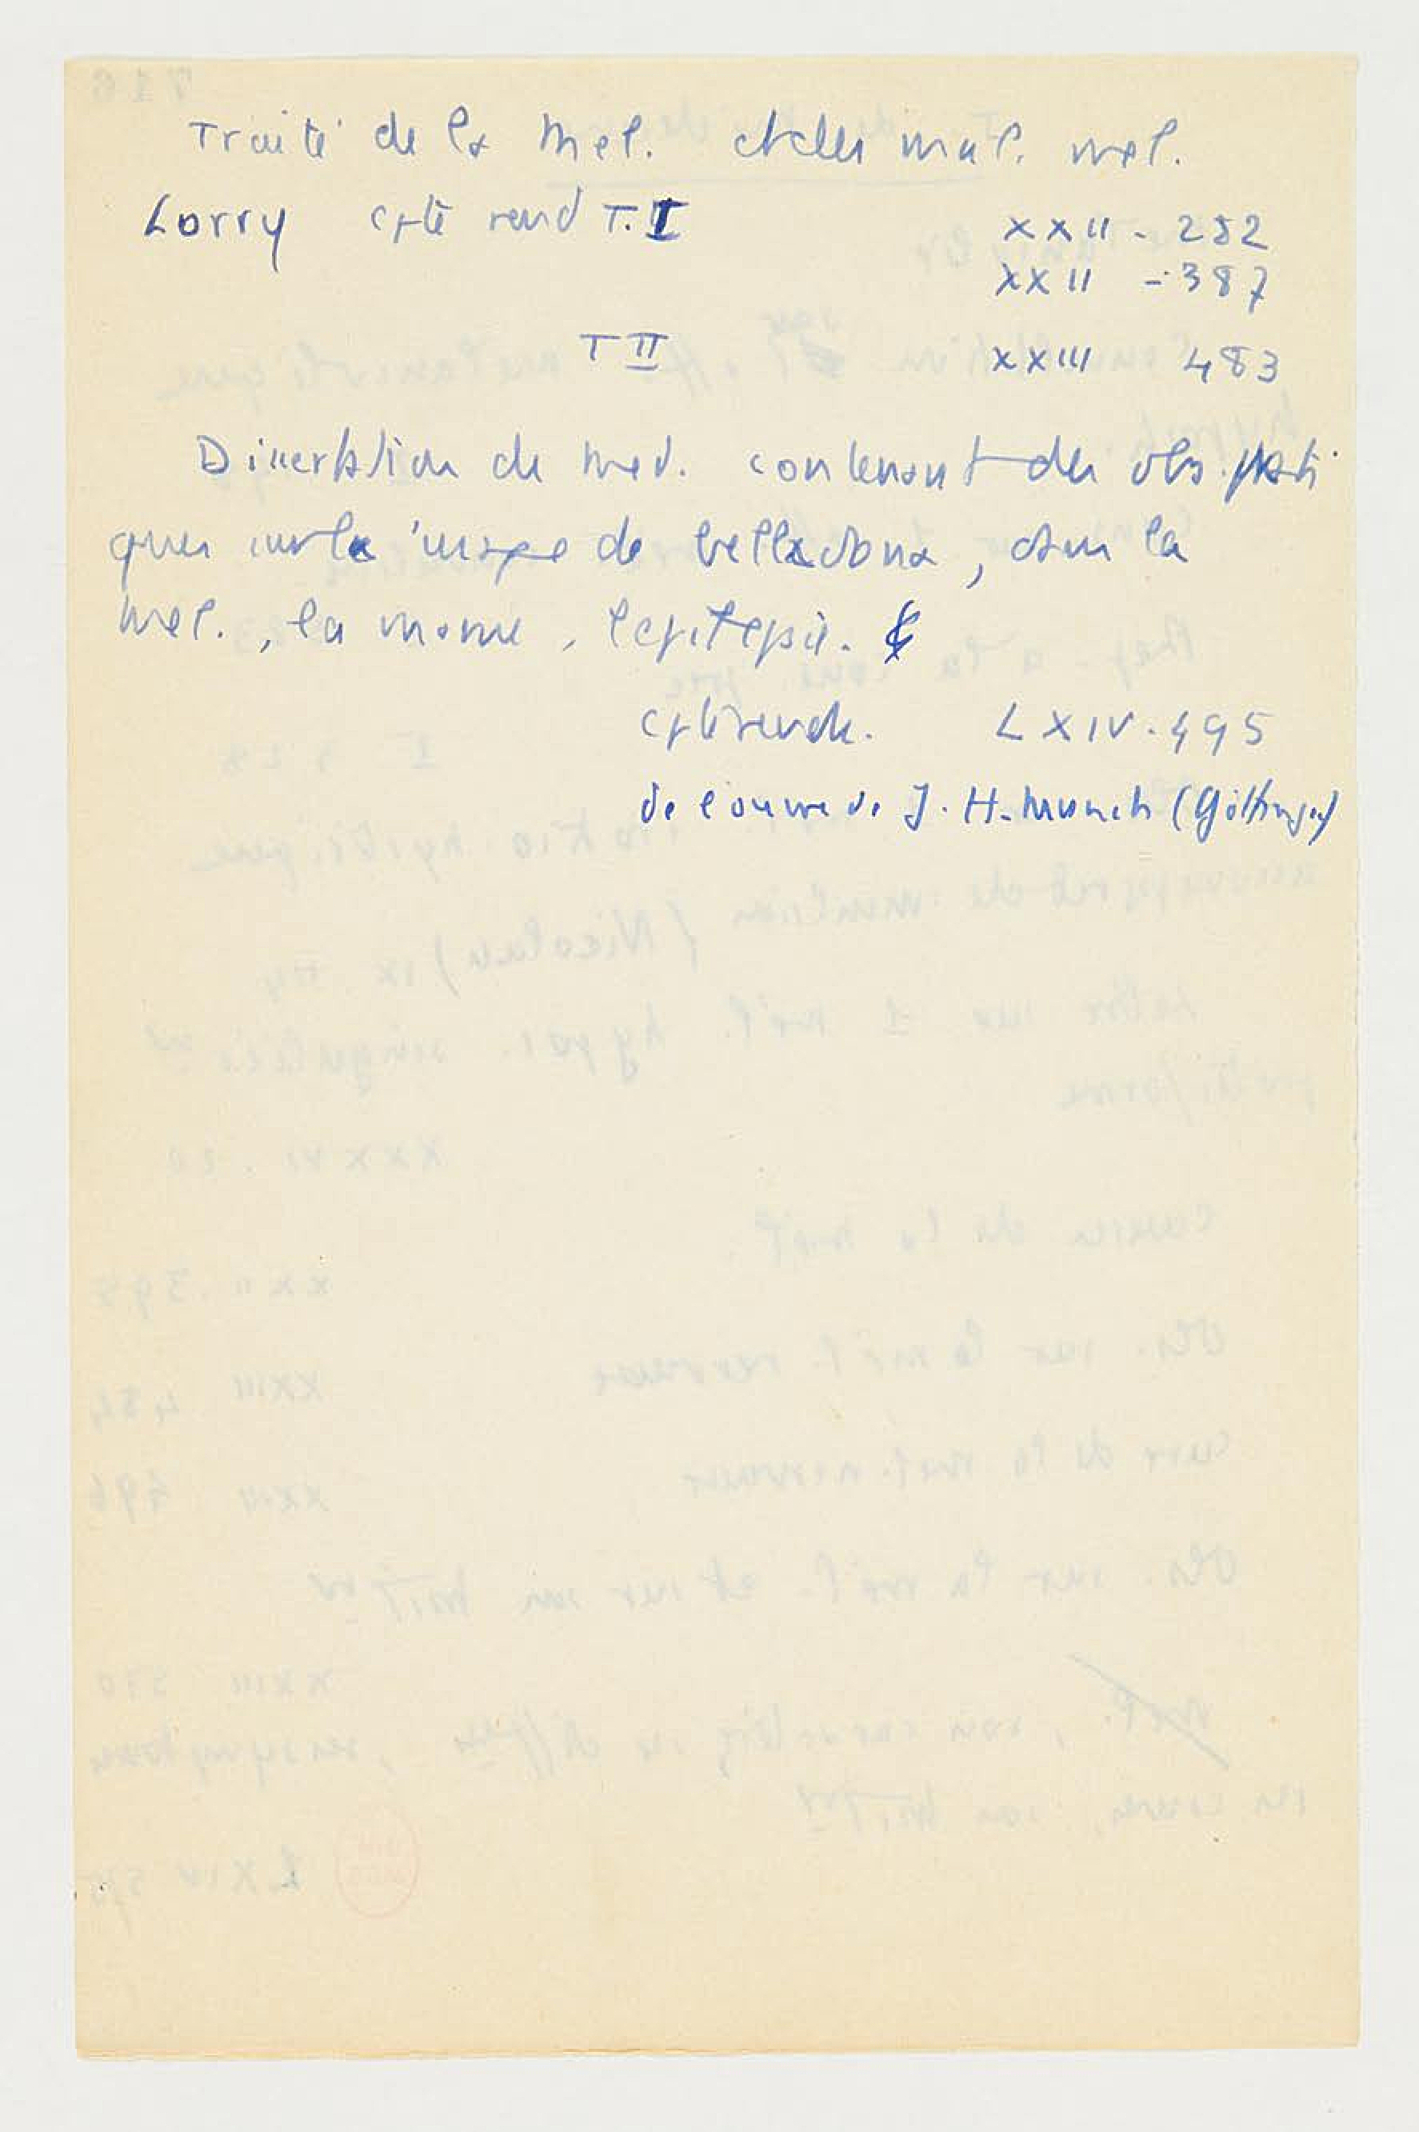 Traité de la Mel. et des mal. mel.
Lorry cpte rend T. I XXII - 252
XXII - 387
T II XXIII 483
Dissertation de med. contenant des obs. prati
ques sur l'usage de belladona, dans la
Mel., la manie, l'epilepsie.
cpte rendu. LXIV. 495
de l'ouvre de J. H. Munch (Göttingen)